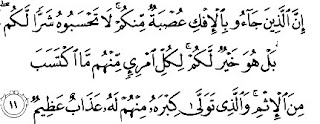 إِنَّ الَّذِينَ جَاءُو بِالْإِفْكِ عُصْبَةٌ مِّنكُمْ ۚ لَا تَحْسَبُوهُ شَرًّا لَّكُم ۖ
بَلْ هُوَ خَيْرٌ لَّكُمْ ۚ لِكُلِّ امْرِئٍ مِّنْهُم مَّا اكْتَسَبَ
مِنَ الْإِثْمِ ۚ وَالَّذِي تَوَلَّىٰ كِبْرَهُ مِنْهُمْ لَهُ عَذَابٌ عَظِيمٌ ١١